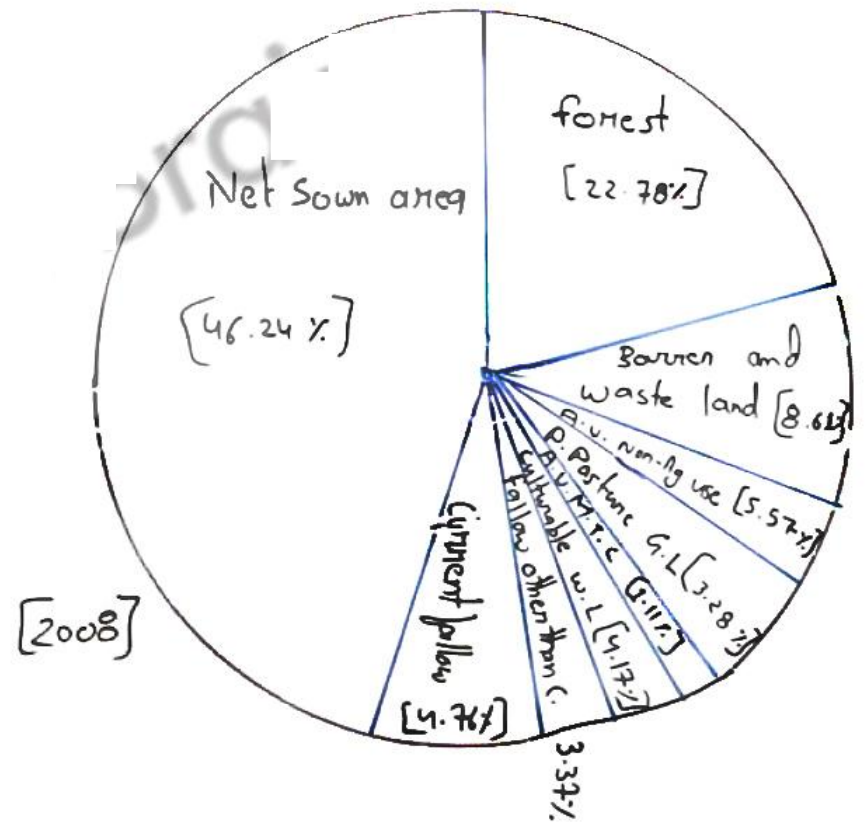 forest
[22.78%]
Net Sown area
[46.24%]
Barren and
waste land [8.6
A.U. Non-Ag use [5.57%]
P. Pasture G.L [3.28%]
A.U.M.T.C [1.11%]
Culturable W.L [4.17%]
fallow other than C.
3.37%
Current fallow
[4.76%]
[2008]